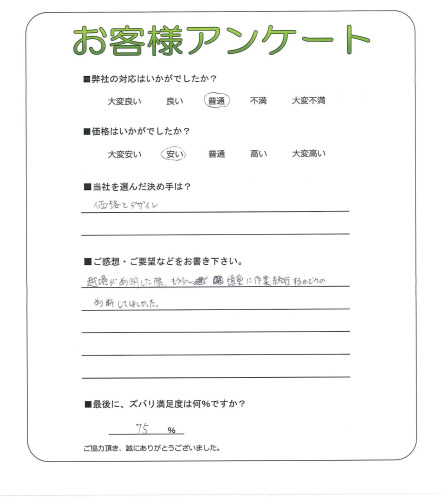 お客様アンケート
■弊社の対応はいかがでしたか?
大変良い 良い 普通 不満 大変不満
■価格はいかがでしたか?
大変安い 安い 普通 高い 大変高い
■当社を選んだ決め手は?
価格とデザイン
■ご感想・ご要望などをお書き下さい。
越境が判明した際、もう少し 慎重に作業続行するかどうかの
判断してほしかった。
■最後に、ズバリ満足度は何%ですか?
75 %
ご協力頂き、誠にありがとうございました。